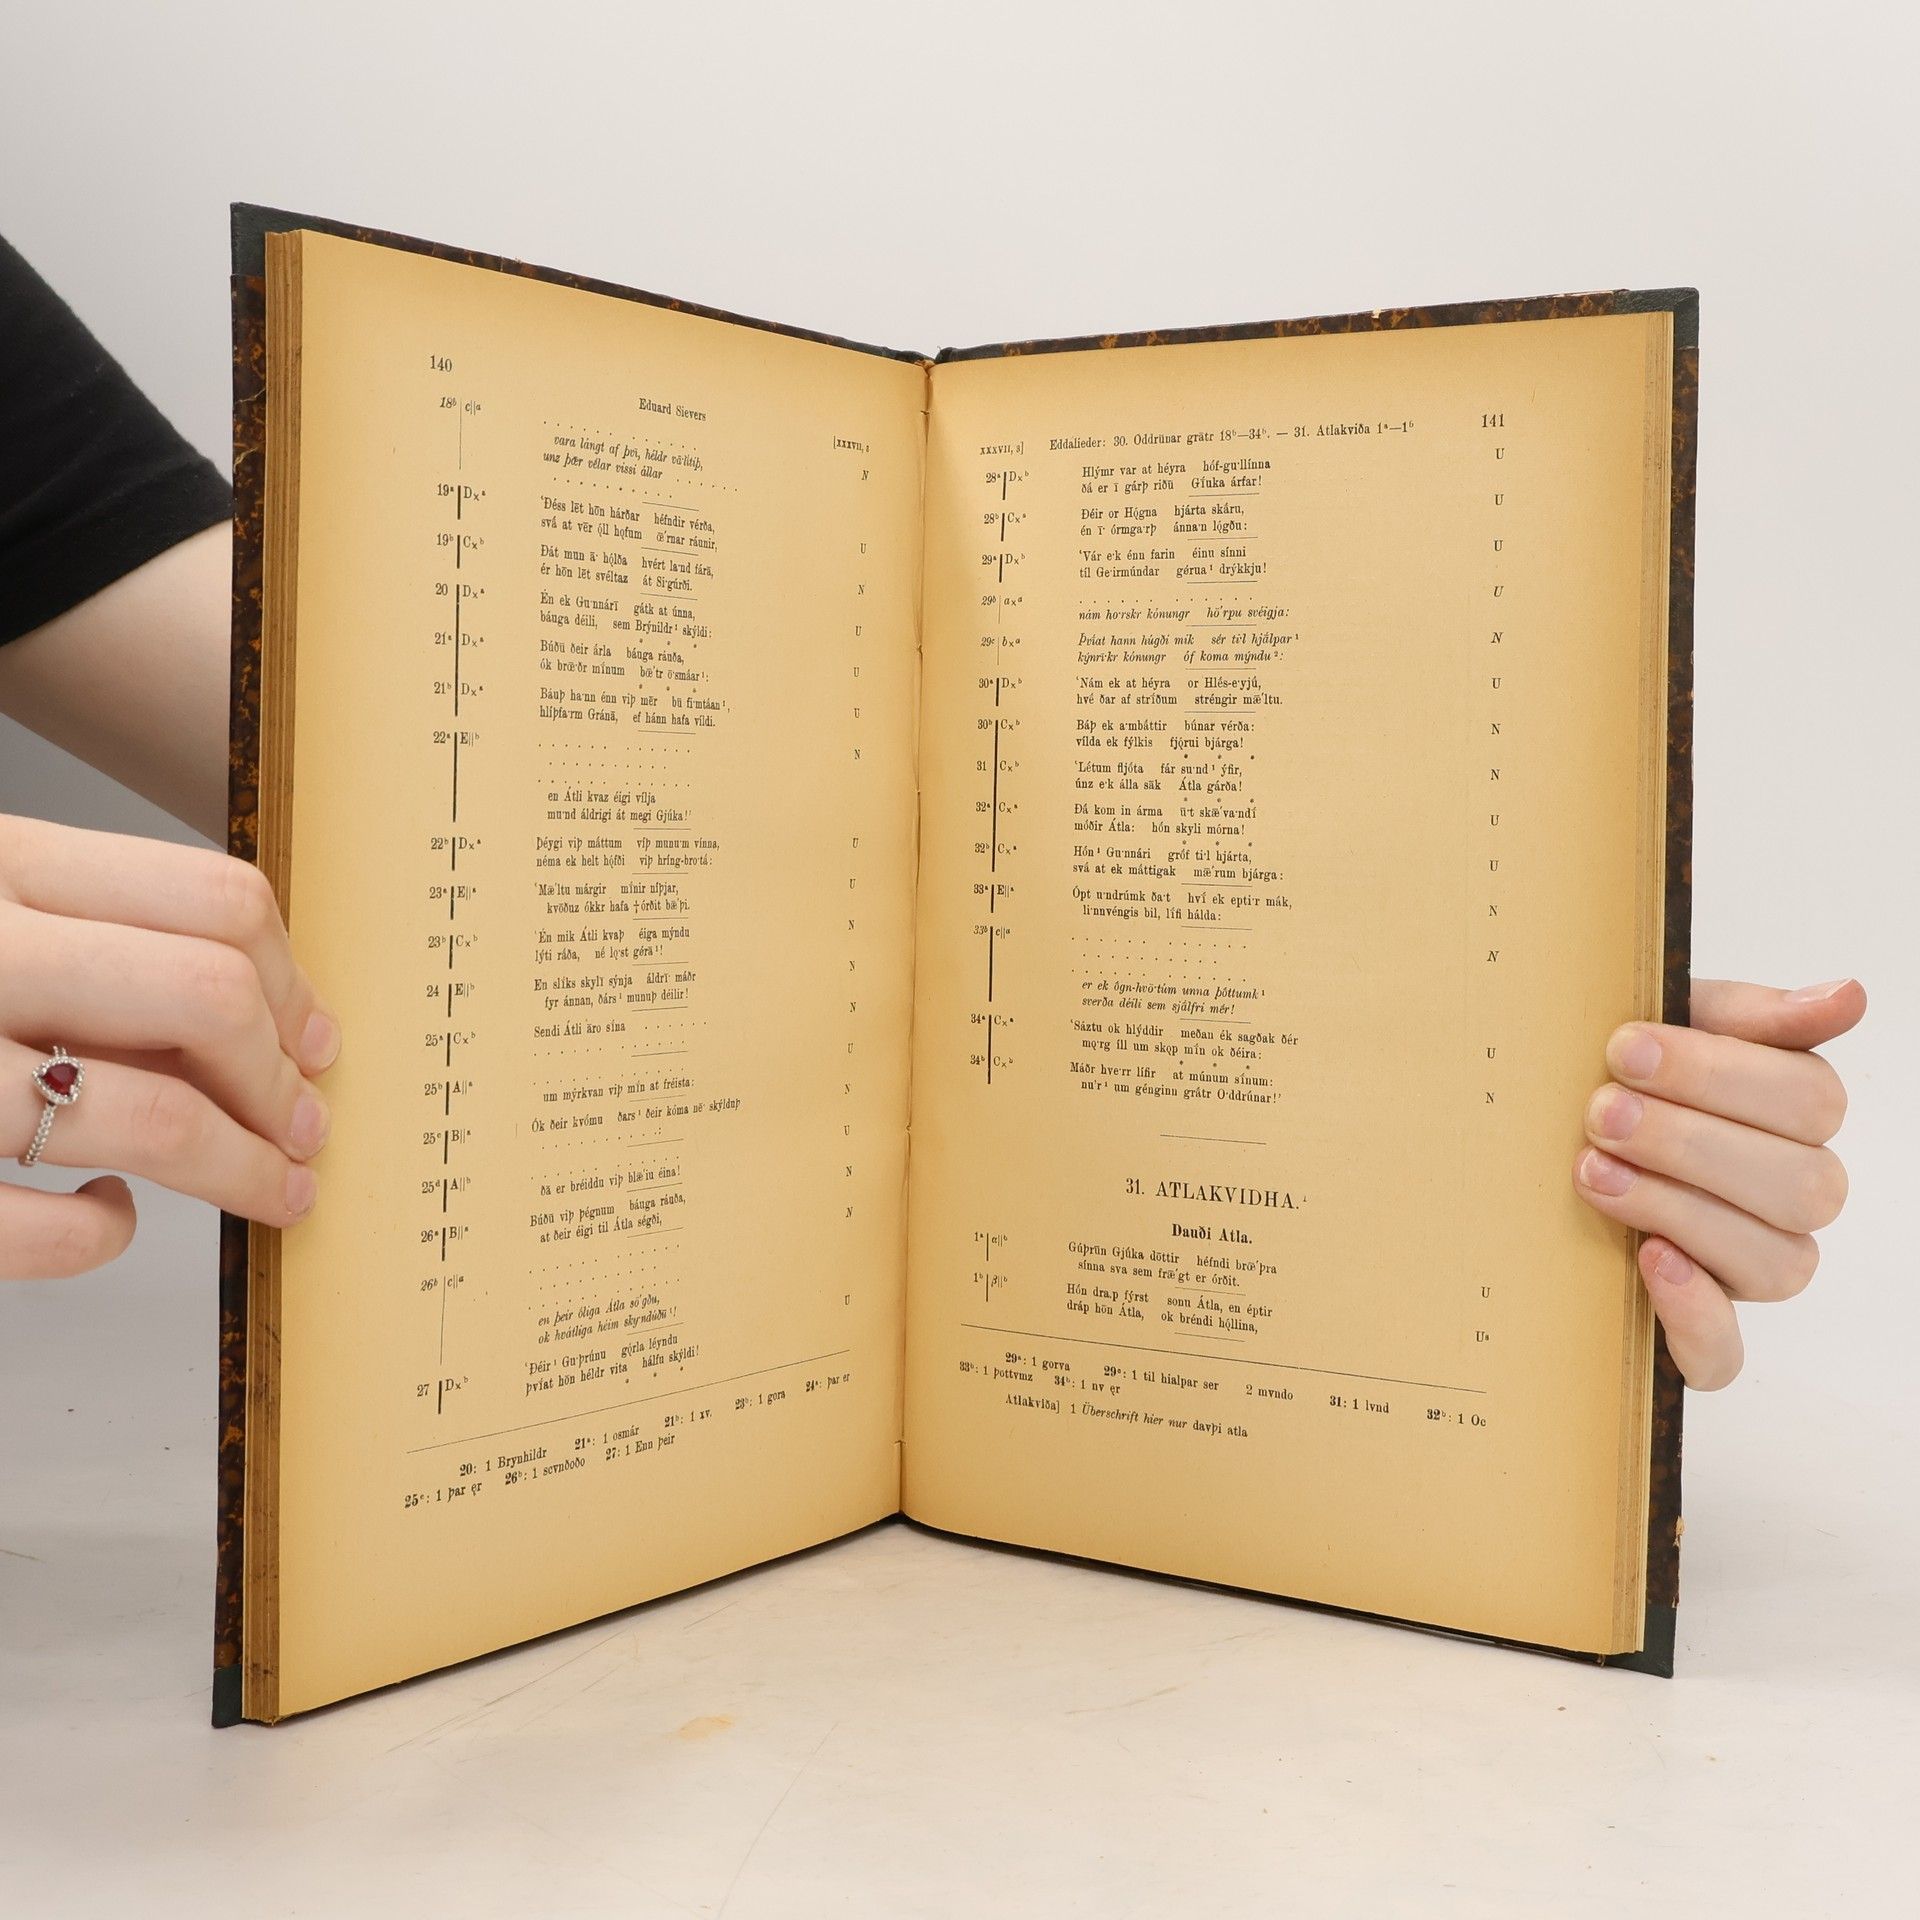 140
Eduard Sievers
[XXXVII, 3
18ᵇ c||a
vara långt af því, héldr vā·lítiþ, N
unz þǣr vélar vissi állar
19ᵃ Dxᵃ ‘Ðéss lēt hōn hárðar héfndir vérða, U
svá at vēr ǫ́ll hǫfum œ̄́rnar ráunir,
19ᵇ Cxᵇ Ðát mun ā· hǫ́lða hvért la·nd fárā, N
ér hōn lēt svéltaz át Si·gúrði.
20 Dxᵃ Én ek Gu·nnárī gátk at únna, U
báuga déili, sem Brýnildr¹ skýldi:
21ᵃ Dxᵃ Búðū ðeir árla báuga ráuða, U
ók brœ̄·ðr mínum bœ̄́tr ō·smáar¹:
21ᵇ Dxᵃ Báuþ ha·nn énn viþ mēr bū fi·mtáan¹, U
hlíþfa·rm Gránā, ef hánn hafa víldi.
22ᵃ E||ᵇ N
en Átli kvaz éigi vílja
mu·nd áldrigi át megi Gjúka!’
22ᵇ Dxᵃ Þéygi viþ máttum víþ munu·m vínna, U
néma ek helt hǫ́fði viþ hríng-bro·tá:
23ᵃ E||ᵃ ‘Mǣ́ltu márgir mínir níþjar, U
kvōðuz ókkr hafa †órðit bǣ́þi.
23ᵇ Cxᵇ ‘Én mik Átli kvaþ éiga mýndu N
lýti ráða, né lǫ·st gérā¹!
24 E||ᵇ En slíks skylī sýnja áldri· máðr N
fyr ánnan, ðárs¹ munuþ déilir!
25ᵃ Cxᵇ Sendi Átli āro sína N
25ᵇ A||ᵃ U
um mýrkvan viþ mín at fréista:
25ᶜ B||ᵃ Ók ðeir kvómu ðars¹ ðeir kóma nē· skýlduþ N
25ᵈ A||ᵇ U
ðā er bréiddu viþ blǣ́iu éina!
26ᵃ B||ᵃ Búðū viþ þégnum báuga ráuða, N
at ðeir éigi til Átla ségði,
26ᵇ c||a N
en þeir óliga Átla sō´gðu,
ok hvátliga héim sky·ndúðū¹!
27 Dxᵇ ‘Ðéir¹ Gu·þrúnu gǫ́rla léyndu U
þvíat hōn héldr vita hálfu skýldi!
20: 1 Brynhildr 21ᵃ: 1 osmár 21ᵇ: 1 xv. 23ᵇ: 1 gora 24ᵃ: þar er
25ᶜ: 1 þar ęr 26ᵇ: 1 scvnðoðo 27: 1 Enn þeir
XXXVII, 3] Eddalieder: 30. Oddrūnar grātr 18ᵇ—34ᵇ. — 31. Atlakviða 1ᵃ—1ᵇ 141
28ᵃ Dxᵇ Hlýmr var at héyra hóf-gu·llínna U
ðá er ī gárþ riðū Gíuka árfar!
28ᵇ Cxᵃ Ðéir or Hǫ́gna hjárta skáru, U
én ī· órmga·rþ ánna·n lǫ́gðu:
29ᵃ Dxᵇ ‘Vár e·k énn farin éinu sínni U
til Ge·irmúndar gérua¹ drýkkju!
29ᵇ axᵃ U
nám ho·rskr kónungr hō´rpu svéigja:
29ᶜ bxᵃ Þvíat hann húgði mik sér ti·l hjálpar¹ N
kýnri·kr kónungr óf koma mýndu²:
30ᵃ Dxᵇ ‘Nám ek at héyra or Hlés-e·yjú, U
hvé ðar af stríðum stréngir mǣ́ltu.
30ᵇ Cxᵇ Báþ ek a·mbáttir búnar vérða: N
vílda ek fýlkis fjǫ́rui bjárga!
31 Cxᵇ ‘Létum fljóta fár su·nd¹ ýfir, N
únz e·k álla sāk Átla gárða!
32ᵃ Cxᵃ Ðá kom in árma ū·t skǣ́va·ndī U
móðir Átla: hón skyli mórna!
32ᵇ Cxᵃ Hón¹ Gu·nnári gróf ti·l hjárta, U
svá at ek máttigak mǣ́rum bjárga:
33ᵃ E||ᵃ Ópt u·ndrúmk ða·t hví ek epti·r mák, N
li·nnvéngis bil, lífi hálda:
33ᵇ c||a N
er ek ógn-hvō·túm unna þóttumk¹
sverða déili sem sjálfri mér!
34ᵃ Cxᵃ ‘Sáztu ok hlýddir meðan ék sagðak ðér U
mǫ·rg íll um skǫp mín ok ðéira:
34ᵇ Cxᵇ Máðr hve·rr lífir at múnum sínum: N
nu·r¹ um génginn grátr O·ddrúnar!’
31. ATLAKVIDHA.¹
Dauði Atla.
1ᵃ α||ᵇ Gúþrūn Gjúka dōttir héfndi brœ̄́þra U
sínna sva sem frǣ́gt er órðit.
1ᵇ β||ᵇ Hón dra.p fýrst sonu Átla, en éptir Uˢ
dráp hōn Átla, ok bréndi hǫ́llina,
29ᵃ: 1 gorva 29ᶜ: 1 til hialpar ser 2 mvndo 31: 1 lvnd 32ᵇ: 1 Oc
33ᵇ: 1 þottvmz 34ᵇ: 1 nv ęr
Atlakviða] 1 Überschrift hier nur davþi atla